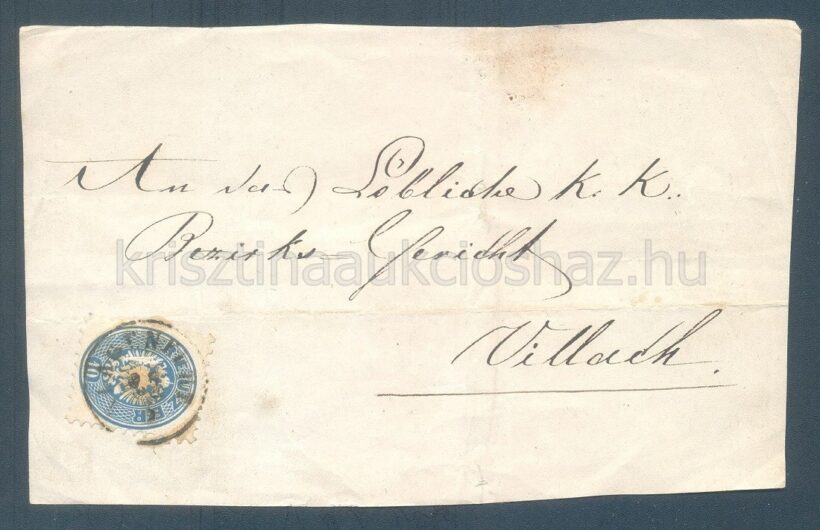 An das Löbliche K. K.
Bezirks-Gericht
krisztinaaukcioshaz.hu
Villach.
10 KR